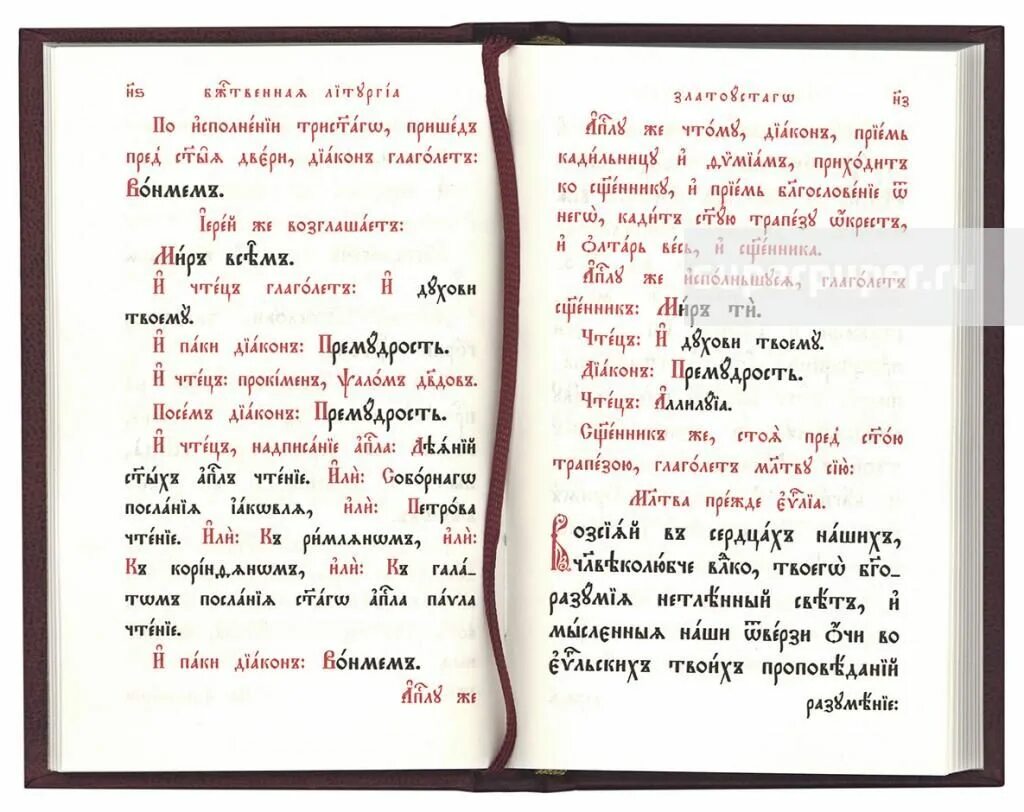 н҃ѕ бжⷭ҇твеннаѧ лїтꙋргі́а
По и҆сполне́нїи трист҃а́гѡ, прише́дъ
пред̾ ст҃ы̑ѧ две́ри, дїа́конъ глаго́летъ:
Во́нмемъ.
І҆ере́й же возглаша́етъ:
Ми́ръ всѣ̑мъ.
И҆ чте́цъ глаго́летъ: И҆ дꙋ́хови
твоемꙋ̀.
И҆ па́ки дїа́конъ: Премꙋ́дрость.
И҆ чте́цъ: прокі́менъ, ѱало́мъ дв҃довъ.
Посе́мъ дїа́конъ: Премꙋ́дрость.
И҆ чте́цъ, надписа́нїе а҆пⷭ҇ла: Дѣѧ́нїй
ст҃ы́хъ а҆пⷭ҇лъ чте́нїе. И҆лѝ: Собо́рнагѡ
посла́нїѧ і҆а́кѡвлѧ, и҆лѝ: Петро́ва
чте́нїе. И҆лѝ: Къ ри́млѧнѡмъ, и҆лѝ:
Къ корі́нѳѧнѡмъ, и҆лѝ: Къ гала́_
тѡмъ посла́нїѧ ст҃а́гѡ а҆пⷭ҇ла па́ѵла
чте́нїе.
И҆ па́ки дїа́конъ: Во́нмемъ.
А҆пⷭ҇лꙋ же
златоꙋ́стагѡ н҃з
А҆пⷭ҇лꙋ же что́мꙋ, дїа́конъ, прїе́мь
кади́льницꙋ и҆ ѳѷмїа́мъ, прихо́дитъ
ко сщ҃е́нникꙋ, и҆ прїе́мь блгⷭ҇ослове́нїе ѿ
негѡ̀, кади́тъ ст҃ꙋ́ю трапе́зꙋ ѡ҆́крестъ,
и҆ ѻ҆лта́рь ве́сь, и҆ сщ҃е́нника.
А҆пⷭ҇лꙋ же и҆спо́лньшꙋсѧ, глаго́летъ
сщ҃е́нникъ: Ми́ръ тѝ.
Чте́цъ: И҆ дꙋ́хови твоемꙋ̀.
Дїа́конъ: Премꙋ́дрость.
Чте́цъ: А҆ллилꙋ́їа.
Сщ҃е́нникъ же, стоѧ̀ пред̾ ст҃о́ю
трапе́зою, глаго́летъ мл҃твꙋ сїю̀:
Мл҃тва пре́жде є҆ѵⷢ҇лїа.
Возсїѧ́й въ сердца́хъ на́шихъ,
чл҃вѣколю́бче вл҃ко, твоегѡ̀ бг҃о_
разꙋ́мїѧ нетлѣ́нный свѣ́тъ, и҆
мы́слєнныѧ на́ши ѿве́рзи ѻ҆́чи во
є҆ѵⷢ҇льскихъ твои́хъ проповѣ́данїй
разꙋмѣ́нїе: